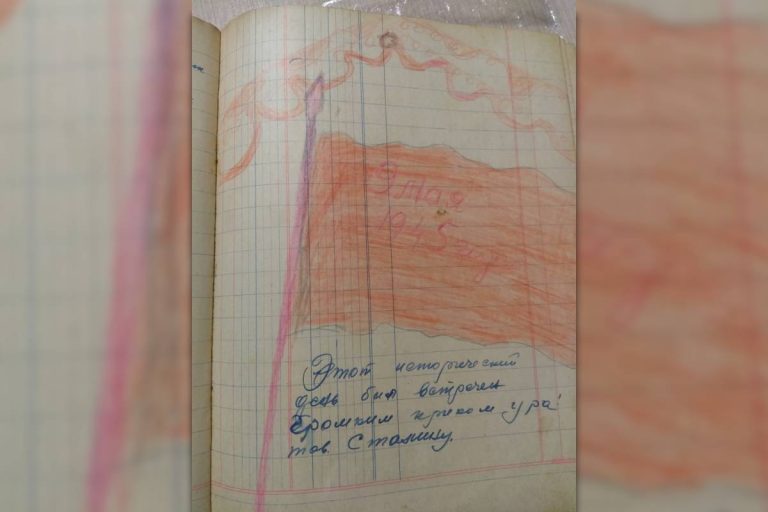 9 мая
1945 год
Этот исторический
день был встречен
Громким криком ура!
тов. Сталину.